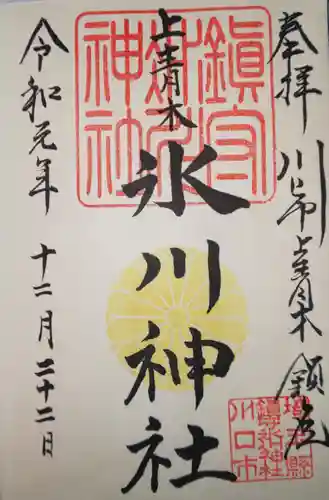 奉拝 川口市上青木鎮座
上青木
氷川神社
令和元年 十二月二十二日
鎮守
氷川
神社
埼玉縣
鎮守氷川神社
川口市